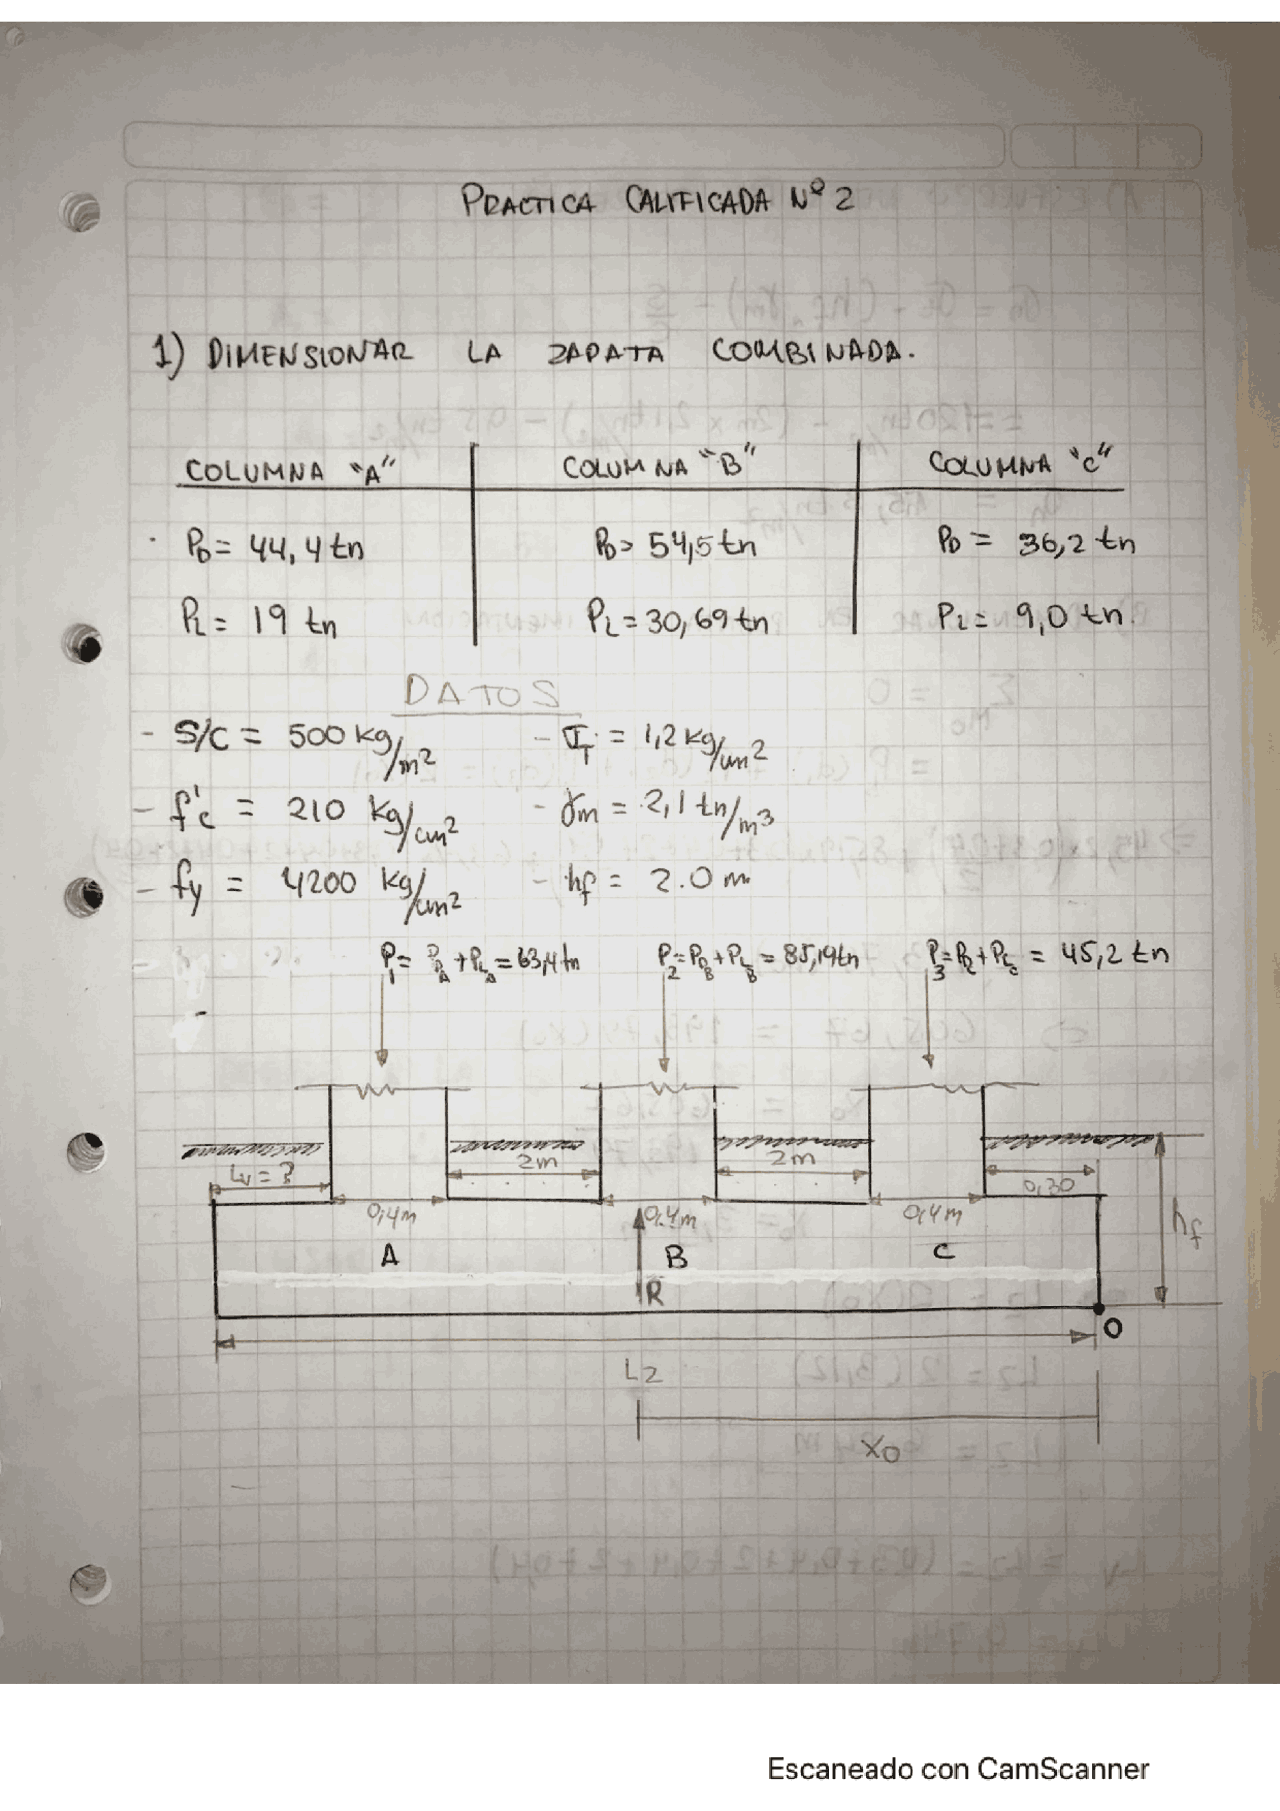 PRACTICA CALIFICADA Nº 2
1) DIMENSIONAR LA ZAPATA COMBINADA.
COLUMNA "A" COLUMNA "B" COLUMNA "C"
PD = 44,4 tn PD = 54,5 tn PD = 36,2 tn
PL = 19 tn PL = 30,69 tn PL = 9,0 tn.
DATOS
- S/C = 500 kg/m2 - σT = 1,2 kg/cm2
- f'c = 210 kg/cm2 - γm = 2,1 tn/m3
- fy = 4200 kg/cm2 - hf = 2.0 m
P1 = PDA + PLA = 63,4 tn P2 = PDB + PLB = 85,19 tn P3 = PD + PLC = 45,2 tn
Lv = ? 2m 2m 0,30
0,4m 0,4m 0,4m hf
A B C
R
O
L2
X0
Escaneado con CamScanner